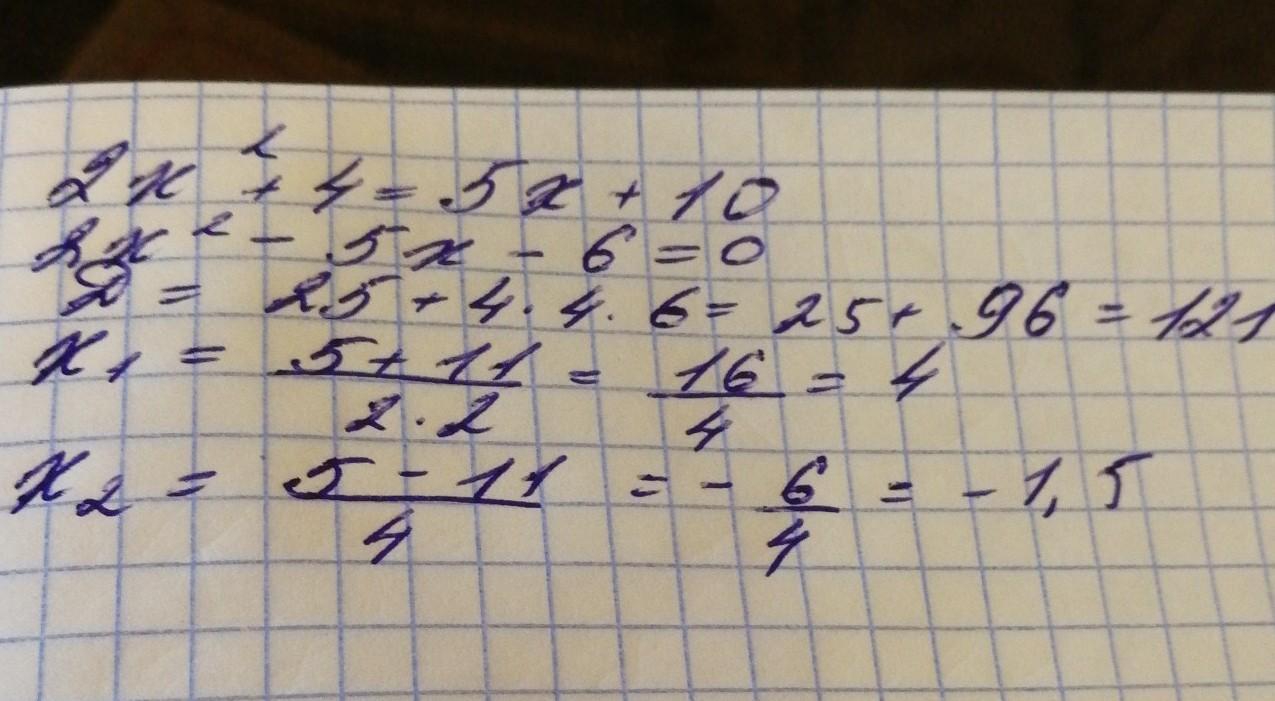 2x² + 4 = 5x + 10
2x² - 5x - 6 = 0
D = 25 + 4 · 4 · 6 = 25 + 96 = 121
x₁ = (5 + 11)/(2 · 2) = 16/4 = 4
x₂ = (5 - 11)/4 = - 6/4 = - 1,5